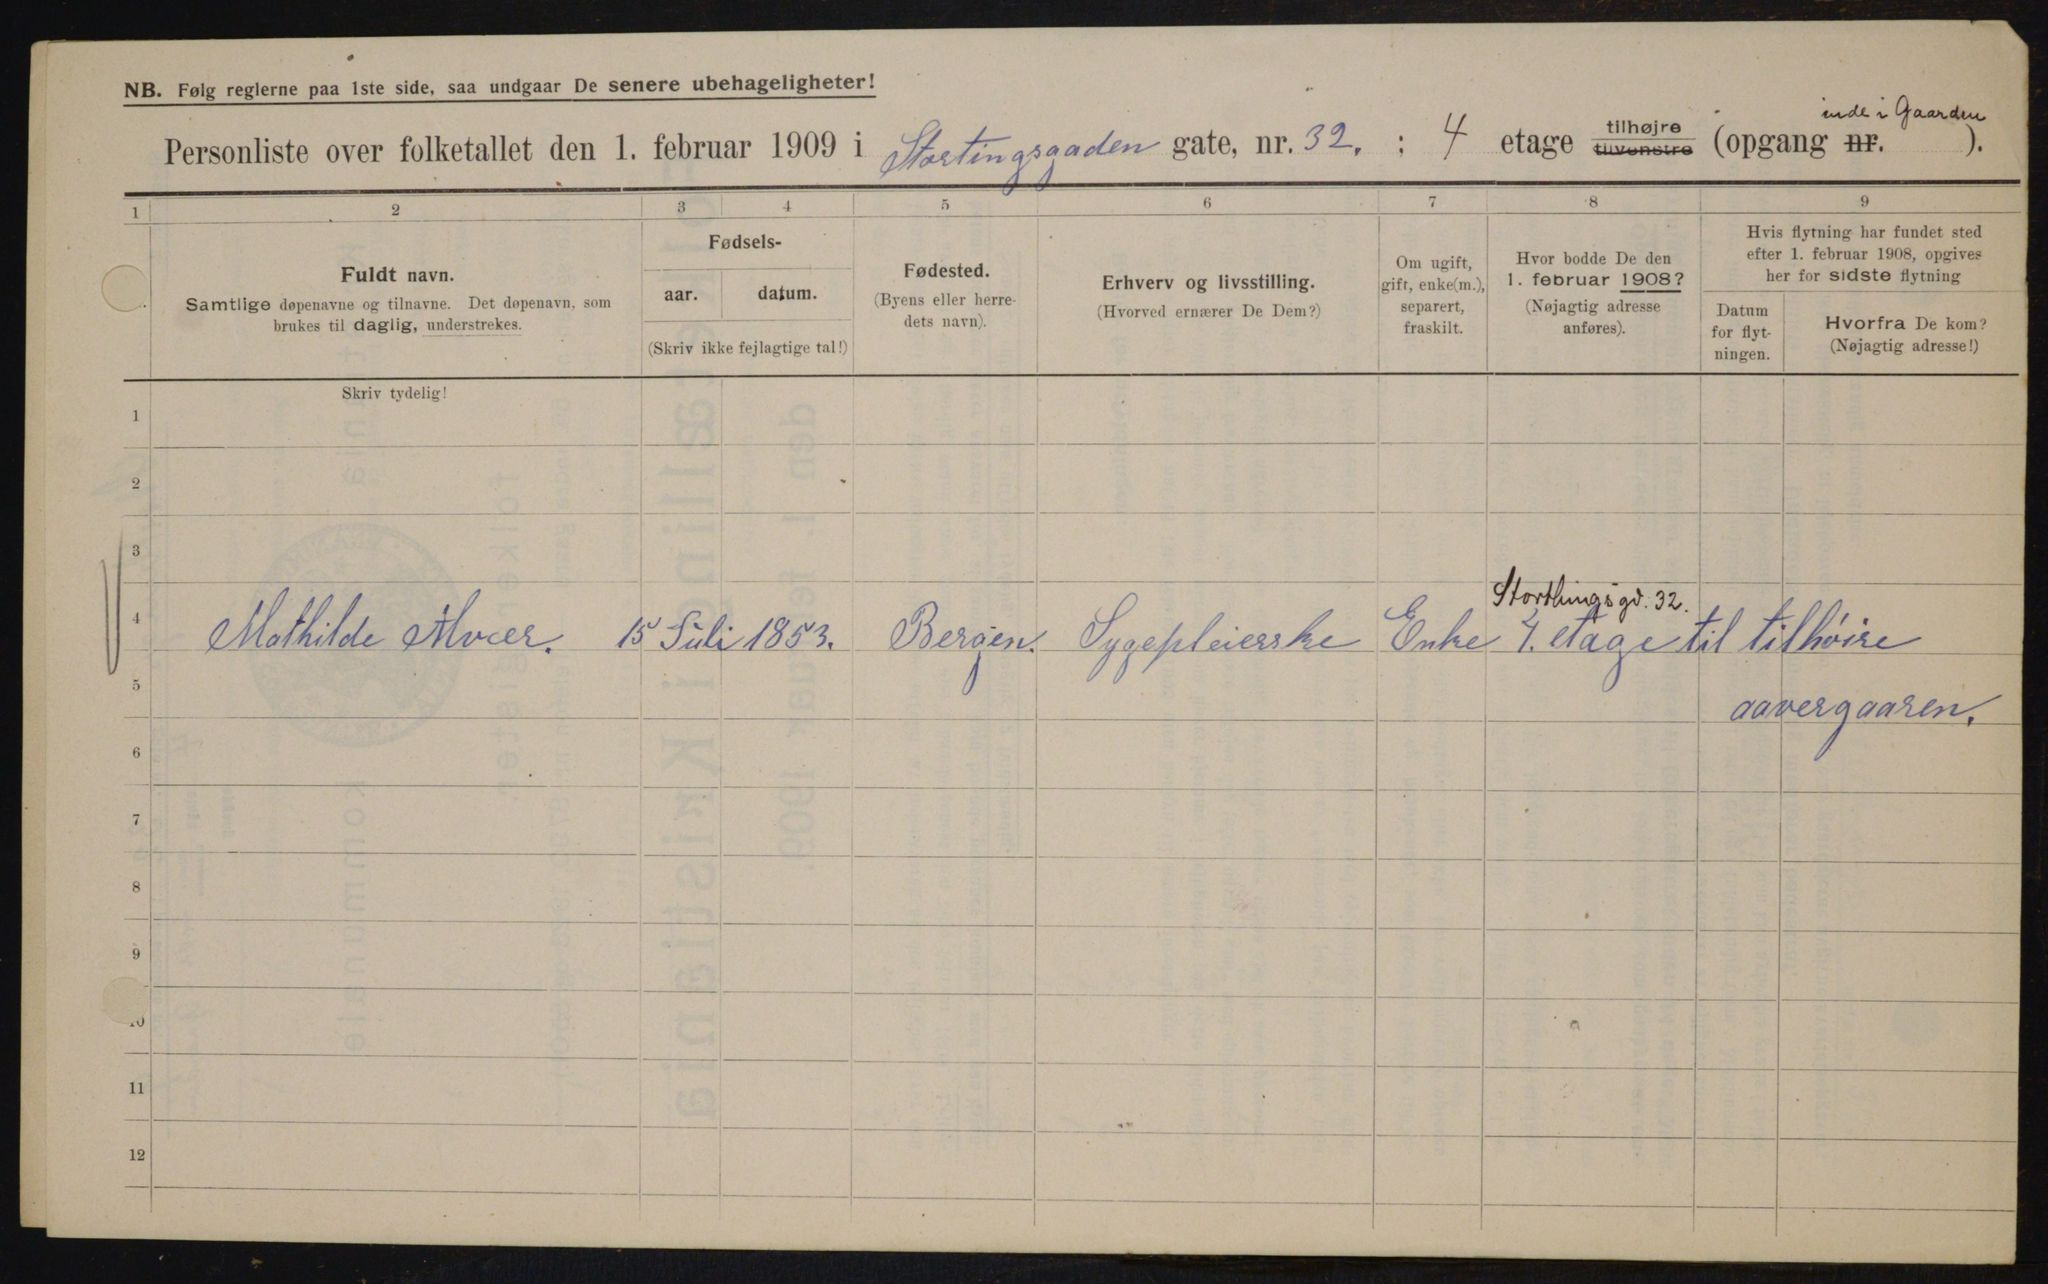 NB. Følg reglerne paa 1ste side, saa undgaar De senere ubehageligheter!
inde i Gaarden
Personliste over folketallet den 1. februar 1909 i Stortingsgaden gate, nr. 32. ; 4 etage tilhøjre tilvenstre (opgang nr. ).
1 2 3 4 5 6 7 8 9
Fuldt navn.
Samtlige døpenavne og tilnavne. Det døpenavn, som
brukes til daglig, understrekes.
Fødsels-
aar. datum.
(Skriv ikke fejlagtige tal!)
Fødested.
(Byens eller herre-
dets navn).
Erhverv og livsstilling.
(Hvorved ernærer De Dem?)
Om ugift,
gift, enke(m.),
separert,
fraskilt.
Hvor bodde De den
1. februar 1908?
(Nøjagtig adresse
anføres).
Hvis flytning har fundet sted
efter 1. februar 1908, opgives
her for sidste flytning
Datum
for flyt-
ningen.
Hvorfra De kom?
(Nøjagtig adresse!)
Skriv tydelig!
1
2
3
Storthingsgd. 32.
4 Mathilde Alvær. 15 Juli 1853. Bergen. Sygepleierske Enke 4. etage til tilhøire
5
aavergaaren.
6
7
8
9
10
11
12